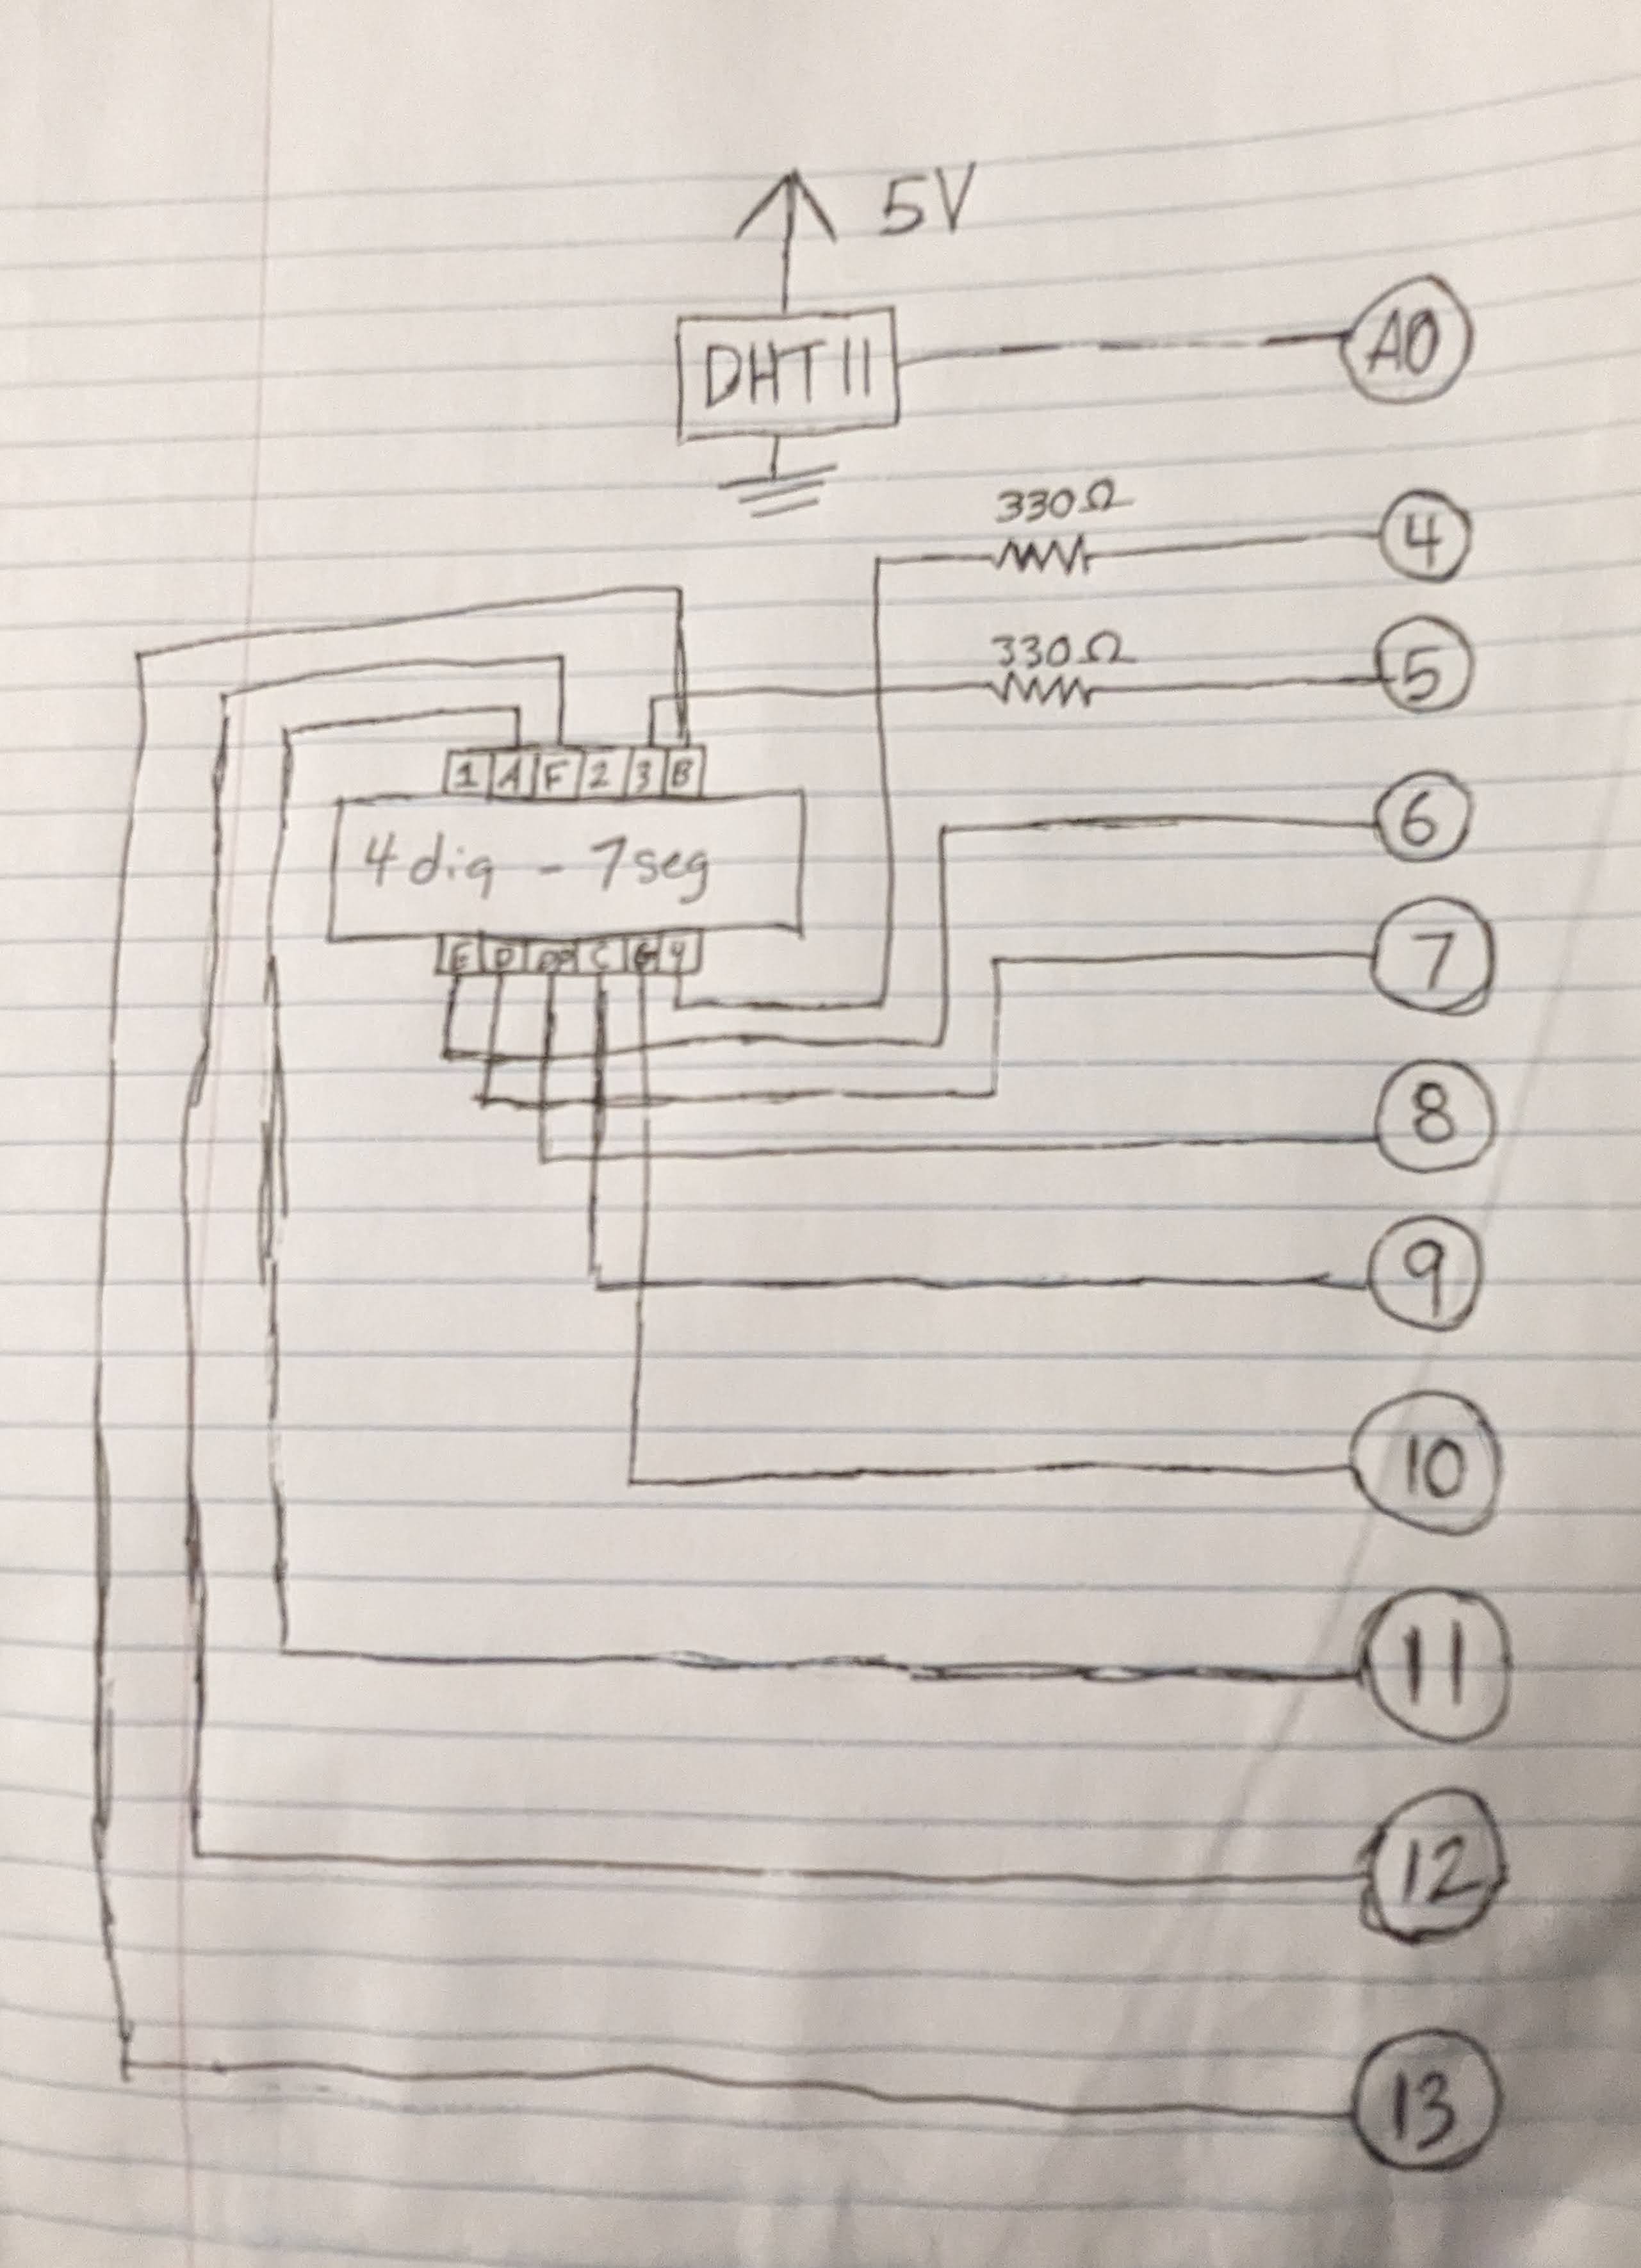 5V
DHT11
A0
330Ω
4
330Ω
5
1 A F 2 3 B
4 dig - 7seg
6
E D DP C G 4
7
8
9
10
11
12
13